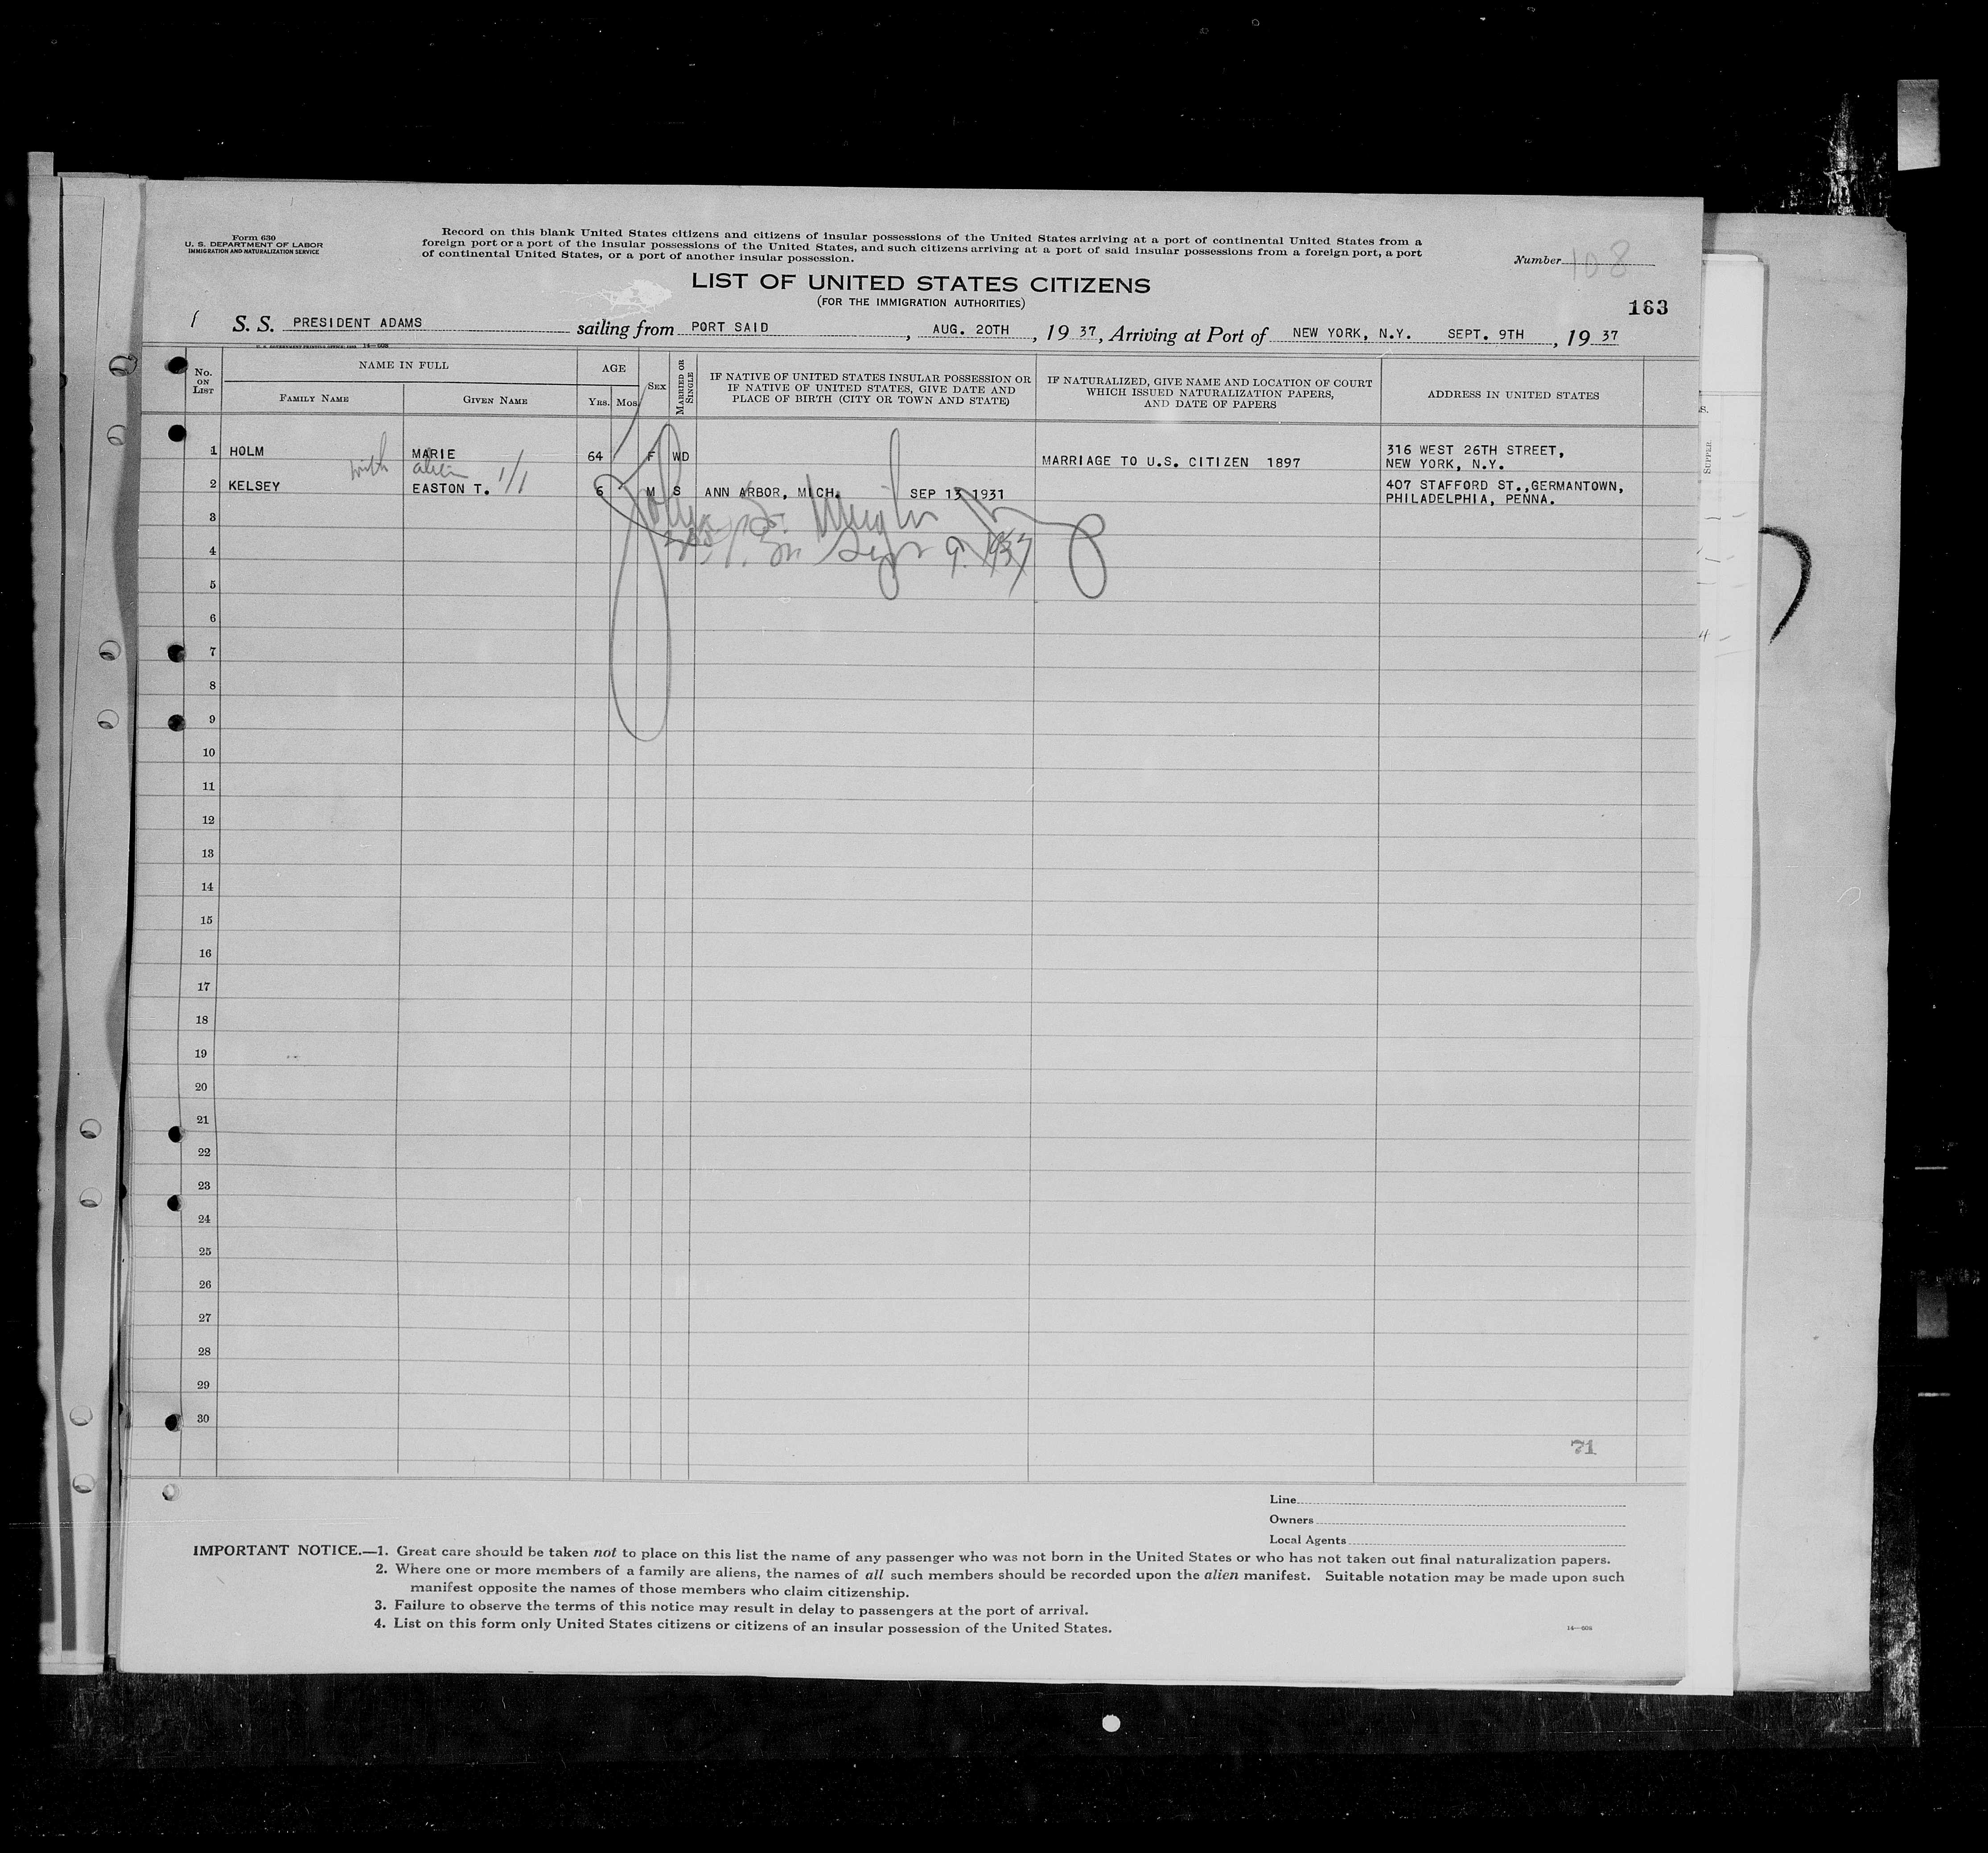 Form 630
U. S. DEPARTMENT OF LABOR
IMMIGRATION AND NATURALIZATION SERVICE
Record on this blank United States citizens and citizens of insular possessions of the United States arriving at a port of continental United States from a
foreign port or a port of the insular possessions of the United States, and such citizens arriving at a port of said insular possessions from a foreign port, a port
of continental United States, or a port of another insular possession.
Number 108
LIST OF UNITED STATES CITIZENS
(FOR THE IMMIGRATION AUTHORITIES)
163
S. S. PRESIDENT ADAMS sailing from PORT SAID, AUG. 20TH, 19 37, Arriving at Port of NEW YORK, N.Y. SEPT. 9TH, 19 37
U. S. GOVERNMENT PRINTING OFFICE 14—608
No. ON LIST
NAME IN FULL
FAMILY NAME
GIVEN NAME
AGE
YRS. MOS.
SEX
MARRIED OR SINGLE
IF NATIVE OF UNITED STATES INSULAR POSSESSION OR
IF NATIVE OF UNITED STATES, GIVE DATE AND
PLACE OF BIRTH (CITY OR TOWN AND STATE)
IF NATURALIZED, GIVE NAME AND LOCATION OF COURT
WHICH ISSUED NATURALIZATION PAPERS,
AND DATE OF PAPERS
ADDRESS IN UNITED STATES
SUPPER
1 HOLM MARIE 64 F WD MARRIAGE TO U.S. CITIZEN 1897 316 WEST 26TH STREET,
NEW YORK, N.Y.
with alien 1/1
2 KELSEY EASTON T. 6 M S ANN ARBOR, MICH. SEP 13 1931 407 STAFFORD ST.,GERMANTOWN,
PHILADELPHIA, PENNA.
Sept 9. 1937
3
4
5
6
7
8
9
10
11
12
13
14
15
16
17
18
19
20
21
22
23
24
25
26
27
28
29
30
71
Line
Owners
Local Agents
IMPORTANT NOTICE.—1. Great care should be taken not to place on this list the name of any passenger who was not born in the United States or who has not taken out final naturalization papers.
2. Where one or more members of a family are aliens, the names of all such members should be recorded upon the alien manifest. Suitable notation may be made upon such
manifest opposite the names of those members who claim citizenship.
3. Failure to observe the terms of this notice may result in delay to passengers at the port of arrival.
4. List on this form only United States citizens or citizens of an insular possession of the United States.
14—608